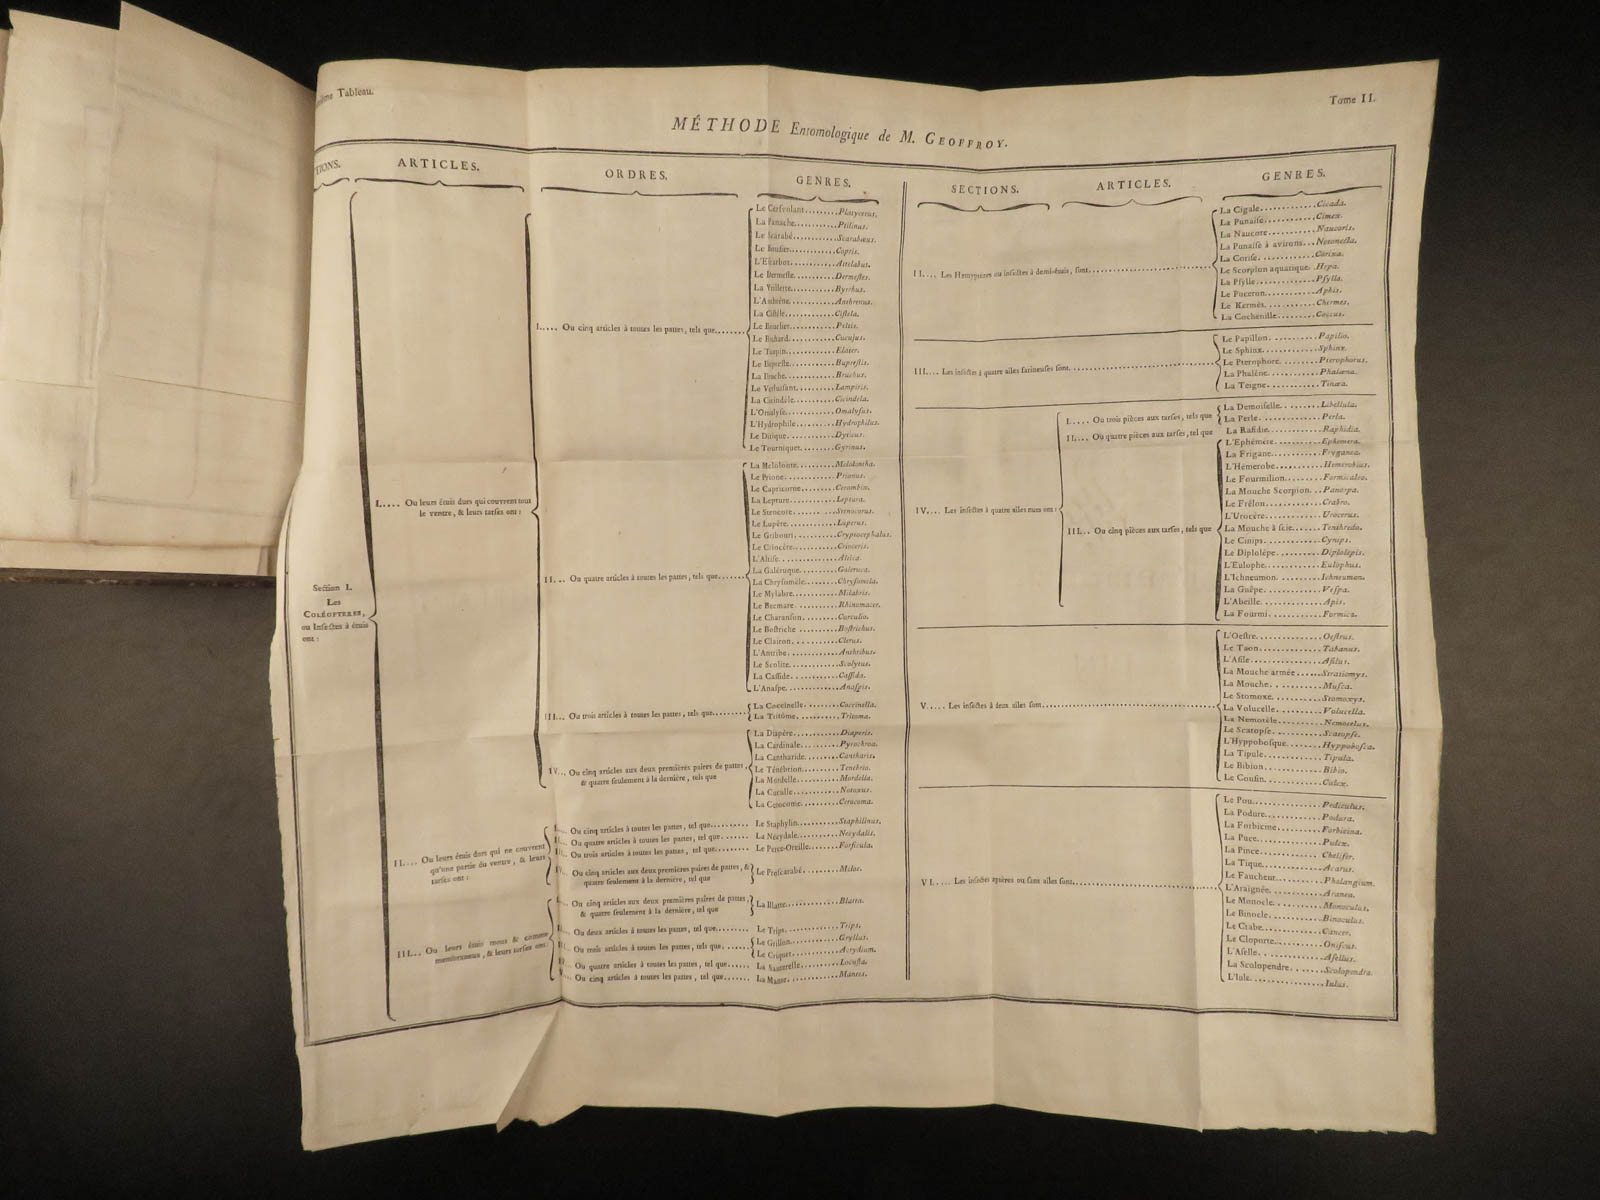 Tableau.
Tome II.
MÉTHODE Entomologique de M. GEOFFROY.
ARTICLES.
ORDRES.
GENRES.
Section I.
Les
COLÉOPTERES,
ou Insectes à étuis
ont :
I..... Ou leurs étuis durs qui couvrent tout
le ventre, & leurs tarses ont :
I..... Ou cinq articles à toutes les pattes, tels que........
Le Cerf-volant.........Platycerus.
La Panache...........Ptilinus.
Le Scarabé...........Scarabæus.
Le Bousier...........Copris.
L'Escarbot...........Attelabus.
Le Dermeste..........Dermestes.
La Vrillette...........Byrrhus.
L'Anthrène...........Anthrenus.
La Cistèle............Cistela.
Le Bouclier...........Peltis.
Le Richard...........Cucujus.
Le Taupin............Elater.
Le Bupreste..........Buprestis.
La Bruche............Bruchus.
Le Verluisant.........Lampiris.
La Cicindèle..........Cicindela.
L'Omalyse............Omalysus.
L'Hydrophile..........Hydrophilus.
Le Ditique............Dyticus.
Le Tourniquet........Gyrinus.
II.... Ou quatre articles à toutes les pattes, tels que.......
La Mélolonte.........Melolontha.
Le Prione............Prionus.
Le Capricorne........Cerambix.
La Lepture...........Leptura.
Le Stencore..........Stenocorus.
Le Lupère............Luperus.
Le Gribouri..........Cryptocephalus.
Le Criocère..........Crioceris.
L'Altise..............Altica.
La Galéruque.........Galeruca.
La Chrysomèle........Chrysomela.
Le Mylabre...........Milabris.
Le Becmare..........Rhinomacer.
Le Charanson........Curculio.
Le Bostriche.........Bostrichus.
Le Clairon...........Clerus.
L'Antribe............Anthribus.
Le Scolite............Scolytus.
La Casside...........Cassida.
L'Anaspe............Anaspis.
III... Ou trois articles à toutes les pattes, tels que.........
La Coccinelle.........Coccinella.
La Tritôme...........Tritoma.
IV... Ou cinq articles aux deux premières paires de pattes,
& quatre seulement à la dernière, tels que
La Diapère...........Diaperis.
La Cardinale.........Pyrochroa.
La Cantharide........Cantharis.
Le Ténébrion.........Tenebrio.
La Mordelle..........Mordella.
La Cuculle...........Notoxus.
La Cérocome.........Cerocoma.
II.... Ou leurs étuis durs qui ne couvrent
qu'une partie du ventre, & leurs
tarses ont :
I.... Ou cinq articles à toutes les pattes, tel que.......... Le Staphylin..........Staphilinus.
II... Ou quatre articles à toutes les pattes, tel que....... La Nécydale..........Necydalis.
III.. Ou trois articles à toutes les pattes, tel que......... Le Perce-Oreille.......Forficula.
IV... Ou cinq articles aux deux premières paires de pattes, &
quatre seulement à la dernière, tel que
Le Proscarabé........Meloe.
III... Ou leurs étuis mous & comme
membraneux, & leurs tarses ont :
I.... Ou cinq articles aux deux premières paires de pattes,
& quatre seulement à la dernière, tel que
La Blatte.............Blatta.
II... Ou deux articles à toutes les pattes, tel que......... Le Trips.............Trips.
III.. Ou trois articles à toutes les pattes, tels que.......
Le Grillon...........Gryllus.
Le Criquet..........Acrydium.
IV.. Ou quatre articles à toutes les pattes, tel que...... La Sauterelle.........Locusta.
V... Ou cinq articles à toutes les pattes, tel que........ La Mante............Mantes.
SECTIONS.
ARTICLES.
GENRES.
II.... Les Hémyptères ou insectes à demi-étuis, sont
La Cigale............Cicada.
La Punaise...........Cimex.
La Naucore..........Naucoris.
La Punaise à avirons...Notonecta.
La Corise............Corixa.
Le Scorpion aquatique. Hepa.
La Psylle.............Psylla.
Le Puceron..........Aphis.
Le Kermès...........Chermes.
La Cochenille.........Coccus.
III.... Les insectes à quatre ailes farineuses sont
Le Papillon..........Papilio.
Le Sphinx...........Sphinx.
Le Ptérophore........Pterophorus.
La Phalène..........Phalæna.
La Teigne...........Tinæa.
IV.... Les insectes à quatre ailes nues ont :
I..... Ou trois pièces aux tarses, tels que
La Demoiselle........Libellula.
La Perle.............Perla.
II.... Ou quatre pièces aux tarses, tel que La Rafidie............Raphidia.
III... Ou cinq pièces aux tarses, tels que
L'Ephémère..........Ephemera.
La Frigane...........Fryganea.
L'Hémerobe.........Hemerobius.
Le Fourmilion........Formicaleo.
La Mouche Scorpion...Panorpa.
Le Frêlon............Crabro.
L'Urocère............Urocerus.
La Mouche à scie......Tenthredo.
Le Cinips............Cynips.
Le Diplolèpe.........Diplolepis.
L'Eulophe...........Eulophus.
L'Ichneumon.........Ichneumon.
La Guêpe............Vespa.
L'Abeille............Apis.
La Fourmi...........Formica.
V..... Les insectes à deux ailes sont
L'Oestre.............Oestrus.
Le Taon.............Tabanus.
L'Asile..............Asilus.
La Mouche armée.....Stratiomys.
La Mouche...........Musca.
Le Stomoxe..........Stomoxys.
La Volucelle..........Volucella.
La Nemotèle.........Nemotelus.
Le Scatopse..........Scatopse.
L'Hyppobosque.......Hyppobosca.
La Tipule............Tipula.
Le Bibion............Bibio.
Le Cousin...........Culex.
VI.... Les insectes aptères ou sans ailes sont
Le Pou..............Pediculus.
La Podure...........Podura.
La Forbicine.........Forbicina.
La Puce.............Pulex.
La Pince............Chelifer.
La Tique............Acarus.
Le Faucheur.........Phalangium.
L'Araignée...........Aranea.
Le Monocle..........Monoculus.
Le Binocle...........Binoculus.
Le Crabe............Cancer.
Le Cloporte..........Oniscus.
L'Aselle.............Asellus.
La Scolopendre.......Scolopendra.
L'Iule...............Iulus.